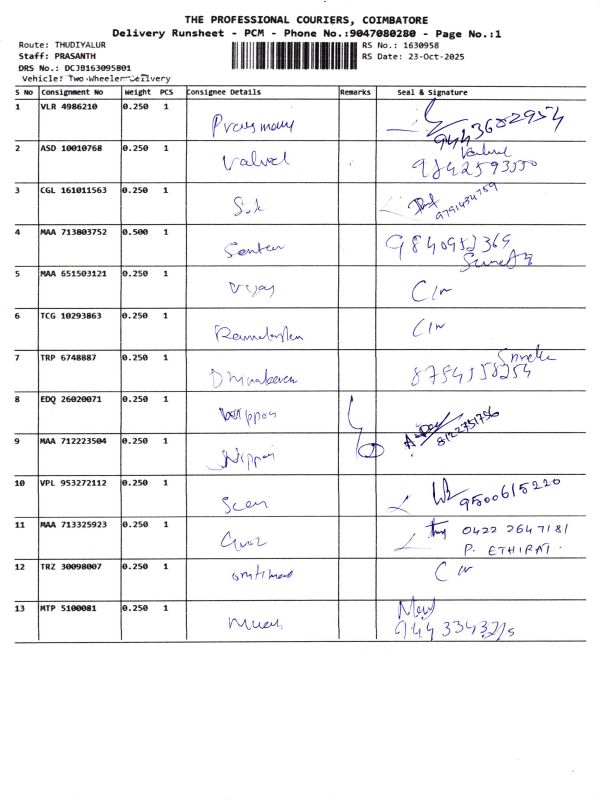 THE PROFESSIONAL COURIERS, COIMBATORE
Delivery Runsheet - PCM - Phone No.:9047080280 - Page No.:1
Route: THUDIYALUR
RS No.: 1630958
Staff: PRASANTH
RS Date: 23-Oct-2025
DRS No.: DCJB163095801
Vehicle: Two Wheeler Delivery
S NO Consignment No Weight PCS Consignee Details Remarks Seal & Signature
1 VLR 4986210 0.250 1
9443682954
2 ASD 10010768 0.250 1 Valvel
9842593550
3 CGL 161011563 0.250 1
9791434759
4 MAA 713803752 0.500 1
9840952369
5 MAA 651503121 0.250 1 Vijay
6 TCG 10293863 0.250 1
7 TRP 6748887 0.250 1
8 EDQ 26020071 0.250 1 Nippon
8122751756
9 MAA 712223504 0.250 1 Nippon
10 VPL 953272112 0.250 1
9500615220
11 MAA 713325923 0.250 1
0422 2647181
P. ETHIRAJ.
12 TRZ 30098007 0.250 1
13 MTP 5100081 0.250 1